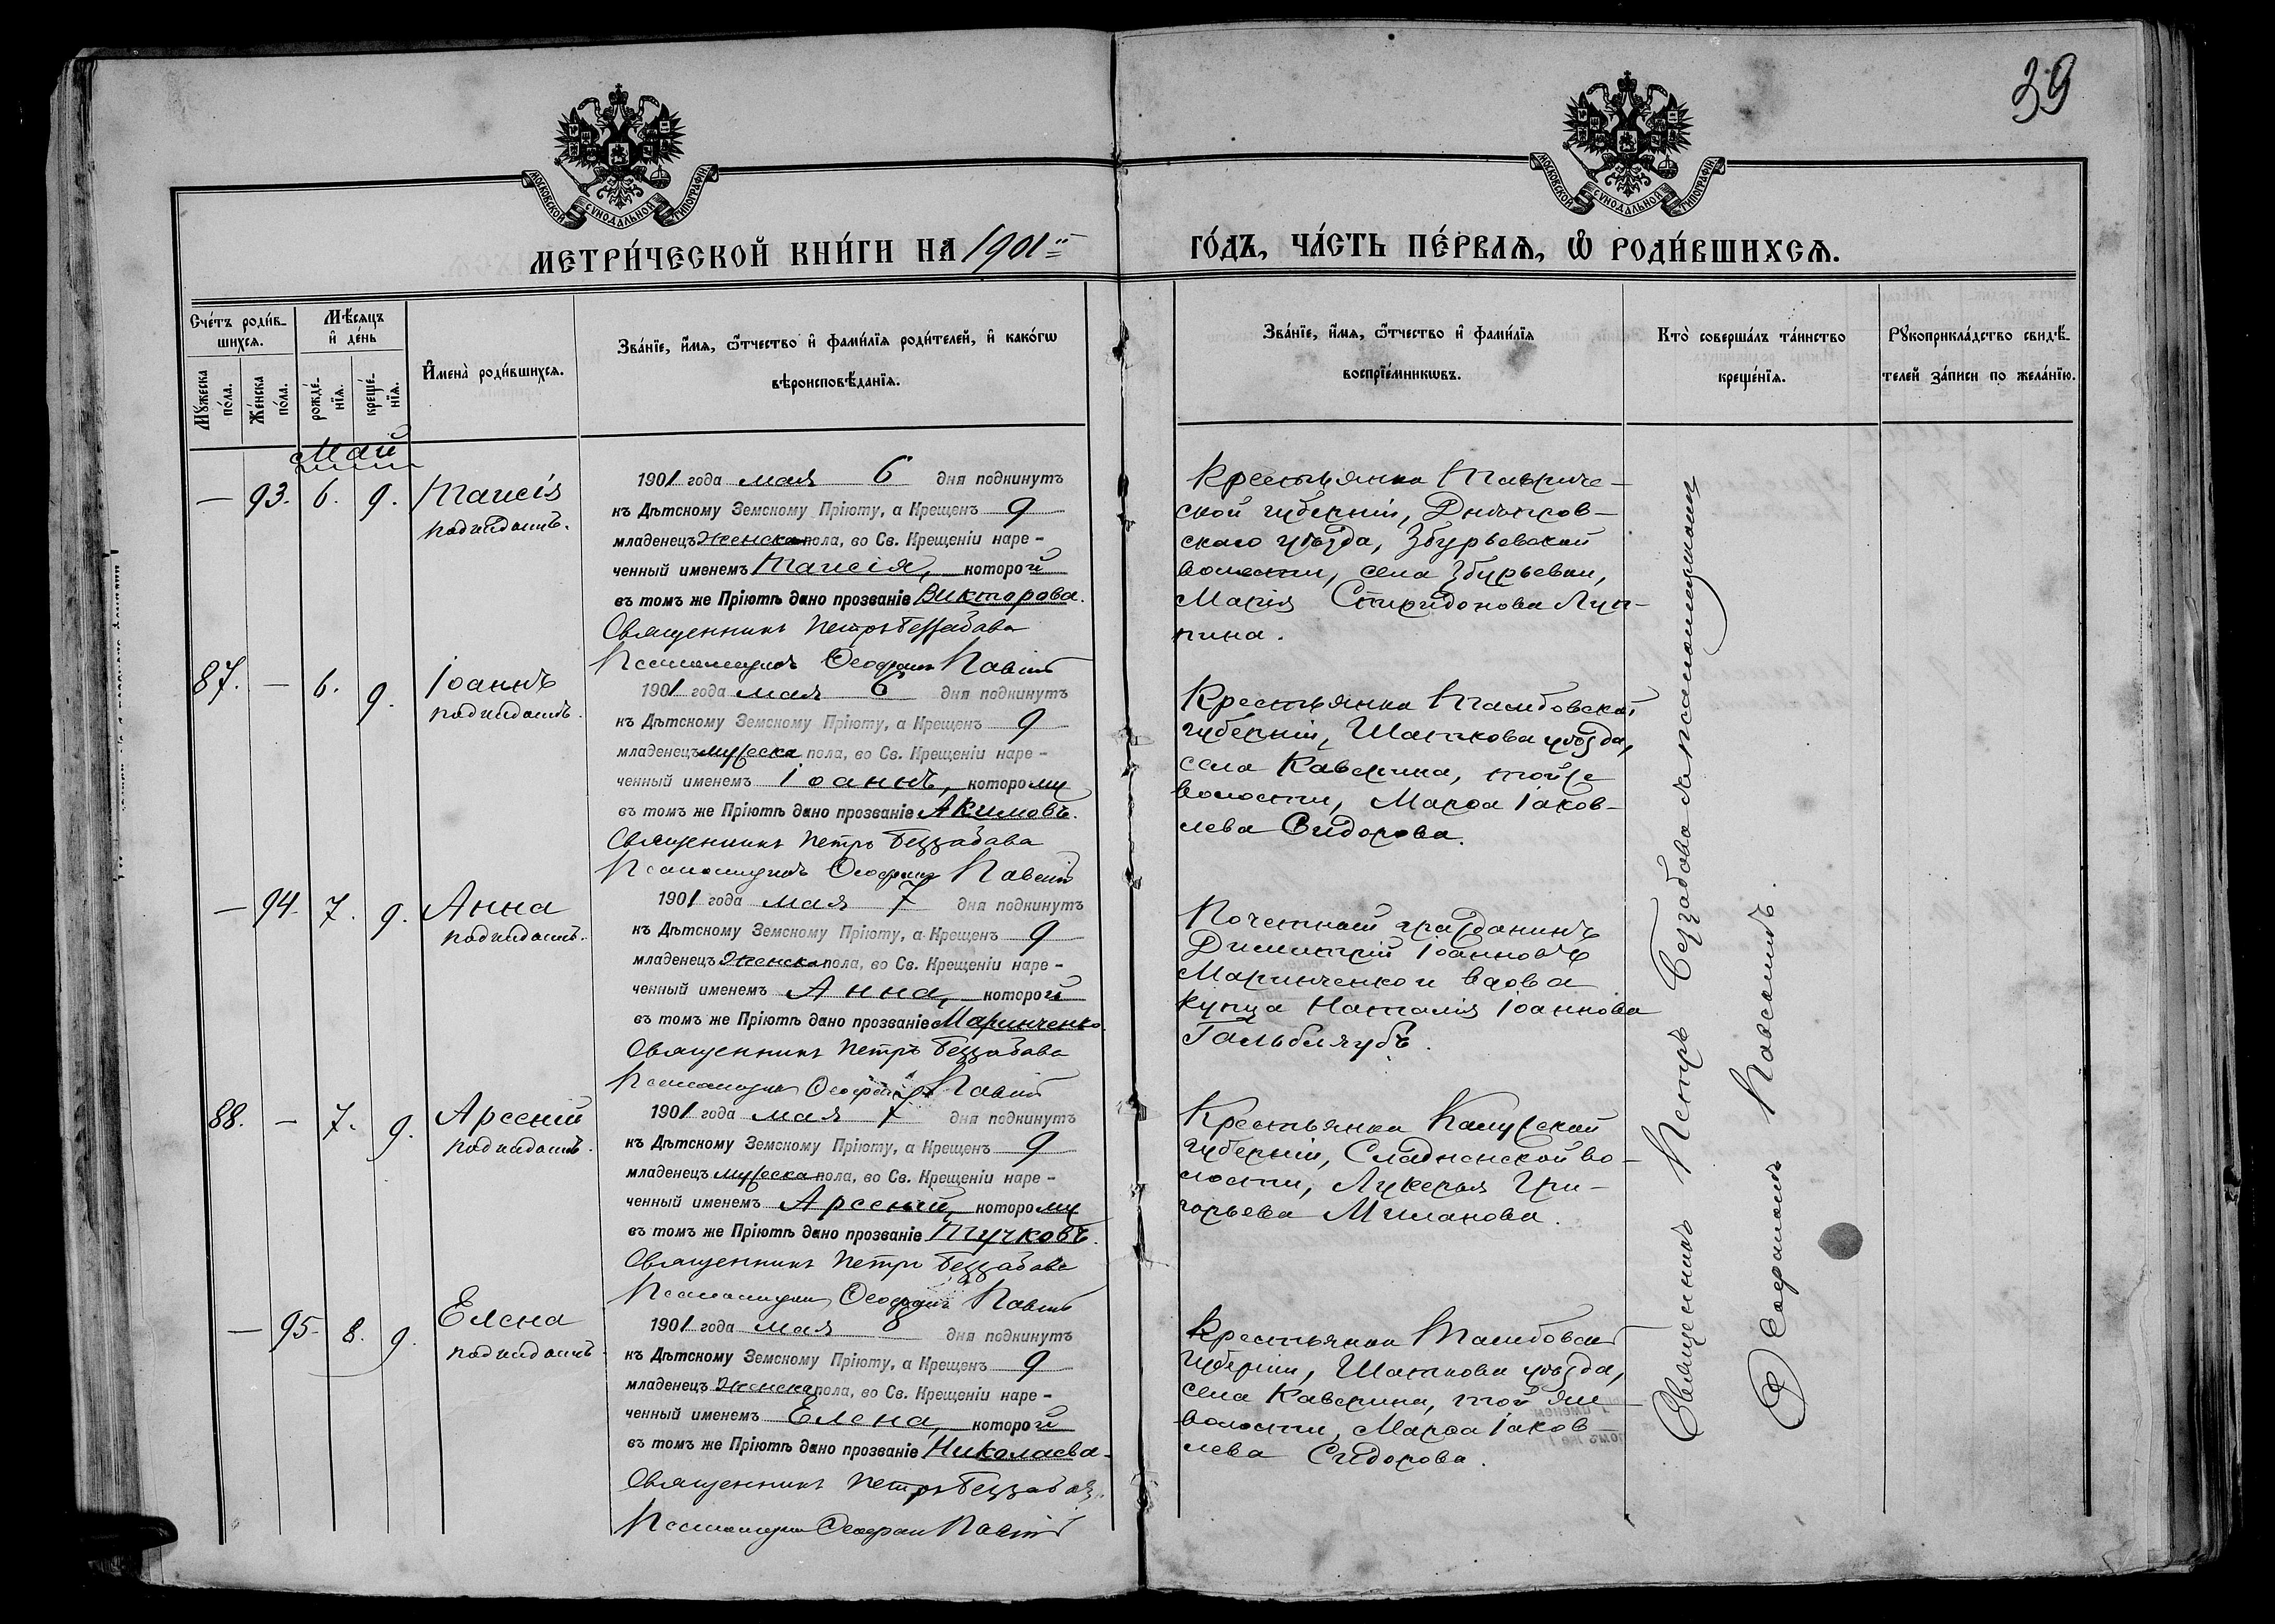 39
МОСКОВСКОЙ СѴНОДАЛЬНОЙ ТИПОГРАФІИ
МОСКОВСКОЙ СѴНОДАЛЬНОЙ ТИПОГРАФІИ
МЕТРИ́ЧЕСКОЙ КНИ́ГИ НА 1901й
ГО́ДЪ, ЧА́СТЬ ПЕ́РВАѦ, Ѽ РОДИ́ВШИХСѦ.
Сче́тъ роди́в-
шихсѧ.
Мѣ́сѧцъ
и҆ де́нь
Мꙋ́жеска
по́ла.
Же́нска
по́ла.
рожде́-
нїѧ.
креще́-
нїѧ.
И҆мена̀ роди́вшихсѧ.
Зва́нїе, и҆́мѧ, ѻ҆́тчество и҆ фами́лїѧ роди́телей, и҆ како́гѡ
вѣроисповѣ́данїѧ.
Зва́нїе, и҆́мѧ, ѻ҆́тчество и҆ фами́лїѧ
воспрїе́мникѡвъ.
Кто̀ соверша́лъ та́инство
креще́нїѧ.
Рꙋкоприкла́дство свидѣ́-
телей за́писи по жела́нїю.
Май
— 93. 6. 9. Таисія
подкидышъ.
1901 года мая 6 дня подкинутъ
къ Дѣтскому Земскому Пріюту, а Крещенъ 9
младенецъ женска пола, во Св. Крещеніи наре-
ченный именемъ Таисія, которой
въ томъ же Пріютѣ дано прозваніе Викторова.
Священникъ Петръ Беззабава
Псаломщикъ Ѳеофанъ Павскій
Крестьянка Тавриче-
ской губерніи, Днѣпров-
скаго уѣзда, Збурьевской
волости, села Збурьевки,
Марія Спиридонова Луп-
пина.
87. — 6. 9. Іоаннъ
подкидышъ.
1901 года мая 6 дня подкинутъ
къ Дѣтскому Земскому Пріюту, а Крещенъ 9
младенецъ мужеска пола, во Св. Крещеніи наре-
ченный именемъ Іоаннъ, которому
въ томъ же Пріютѣ дано прозваніе Акимовъ.
Священникъ Петръ Беззабава
Псаломщикъ Ѳеофанъ Павскій
Крестьянка Тамбовской
губерніи, Шатскова уѣзда,
села Каверина, тойже
волости, Марѳа Іаков-
лева Сидорова.
— 94. 7. 9. Анна
подкидышъ.
1901 года мая 7 дня подкинутъ
къ Дѣтскому Земскому Пріюту, а Крещенъ 9
младенецъ женска пола, во Св. Крещеніи наре-
ченный именемъ Анна, которой
въ томъ же Пріютѣ дано прозваніе Маринченко.
Священникъ Петръ Беззабава
Псаломщикъ Ѳеофанъ Павскій
Почетный гражданинъ
Димитрій Іоанновъ
Маринченко и вдова
купца Наталія Іоаннова
88. — 7. 9. Арсеній
подкидышъ.
1901 года мая 7 дня подкинутъ
къ Дѣтскому Земскому Пріюту, а Крещенъ 9
младенецъ мужеска пола, во Св. Крещеніи наре-
ченный именемъ Арсеній, которому
въ томъ же Пріютѣ дано прозваніе Тучковъ.
Священникъ Петръ Беззабава
Псаломщикъ Ѳеофанъ Павскій
Крестьянка Калужской
губерніи, во-
лости, Лукерья Гри-
горьева Миланова.
— 95. 8. 9. Елена
подкидышъ.
1901 года мая 8 дня подкинутъ
къ Дѣтскому Земскому Пріюту, а Крещенъ 9
младенецъ женска пола, во Св. Крещеніи наре-
ченный именемъ Елена, которой
въ томъ же Пріютѣ дано прозваніе Николаева.
Священникъ Петръ Беззабава
Псаломщикъ Ѳеофанъ Павскій
Крестьянка Тамбовской
губерніи, Шатскова уѣзда,
села Каверина, той же
волости, Марѳа Іаков-
лева Сидорова.
Священникъ Петръ Беззабава съ псаломщикомъ
Ѳеофаномъ Павскимъ.